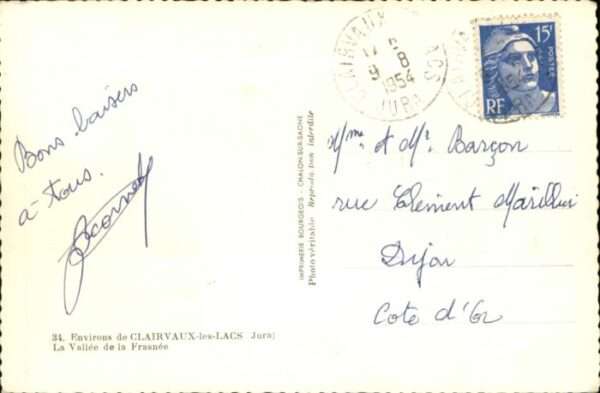 Bons baisers
à tous.
34. Environs de CLAIRVAUX-les-LACS (Jura)
La Vallée de la Frasnée
IMPRIMERIE BOURGEOIS - CHALON-SUR-SAONE
Photo véritable Reproduction interdite
CLAIRVAUX
9 8
1954
JURA
15F
POSTES
RF
Mme et Mr Barçon
rue Clément
Dijon
Cote d'Or